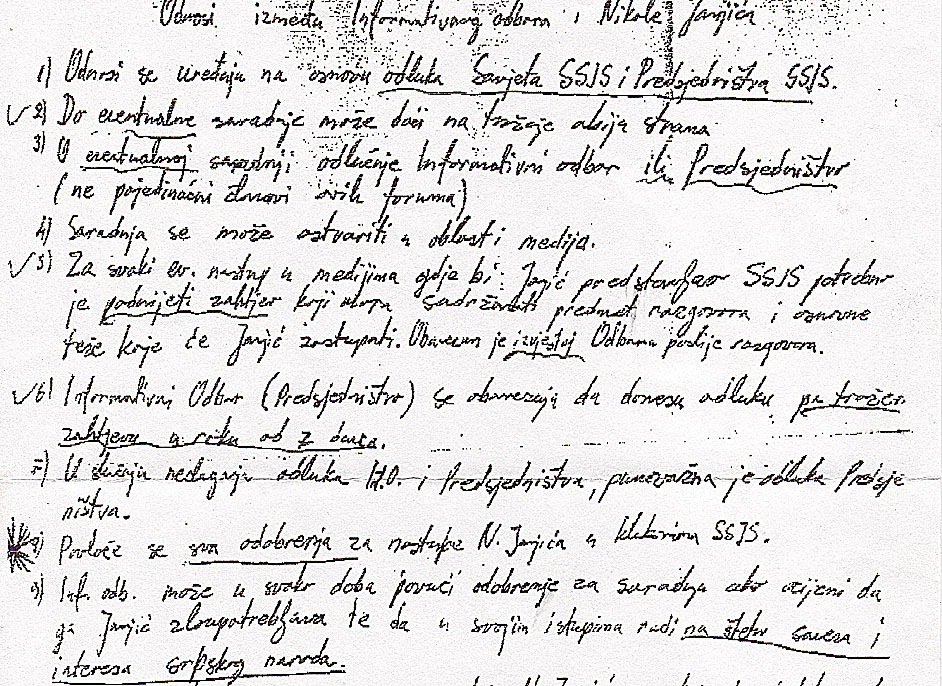 Odnosi između Informativnog odbora i Nikole Janjića
1) Odnosi se uređuju na osnovu odluka Savjeta SSJS i Predsjedništva SSJS.
2) Do eventualne saradnje može doći na traženje obiju strana
3) O eventualnoj saradnji odlučuje Informativni odbor ili Predsjedništvo
(ne pojedinačni članovi ovih foruma)
4) Saradnja se može ostvariti u oblasti medija.
5) Za svaki ev. nastup u medijima gdje bi Janjić predstavljao SSJS potrebno
je podnijeti zahtjev koji mora sadržavati predmet razgovora i osnovne
teze koje će Janjić zastupati. Obavezan je izvještaj Odboru poslije razgovora.
6) Informativni Odbor (Predsjedništvo) se obavezuju da donesu odluku po traženom
zahtjevu u roku od 2 dana.
7) U slučaju neslaganja odluka I.O. i Predsjedništva, punovažna je odluka Predsje
ništva.
8) Povlače se sva odobrenja za nastupe N. Janjića u klubovima SSJS.
9) Inf. odb. može u svako doba povući odobrenje za saradnju ako ocijeni da
ga Janjić zloupotrebljava te da u svojim istupima radi na štetu saveza i
interesa srpskog naroda.